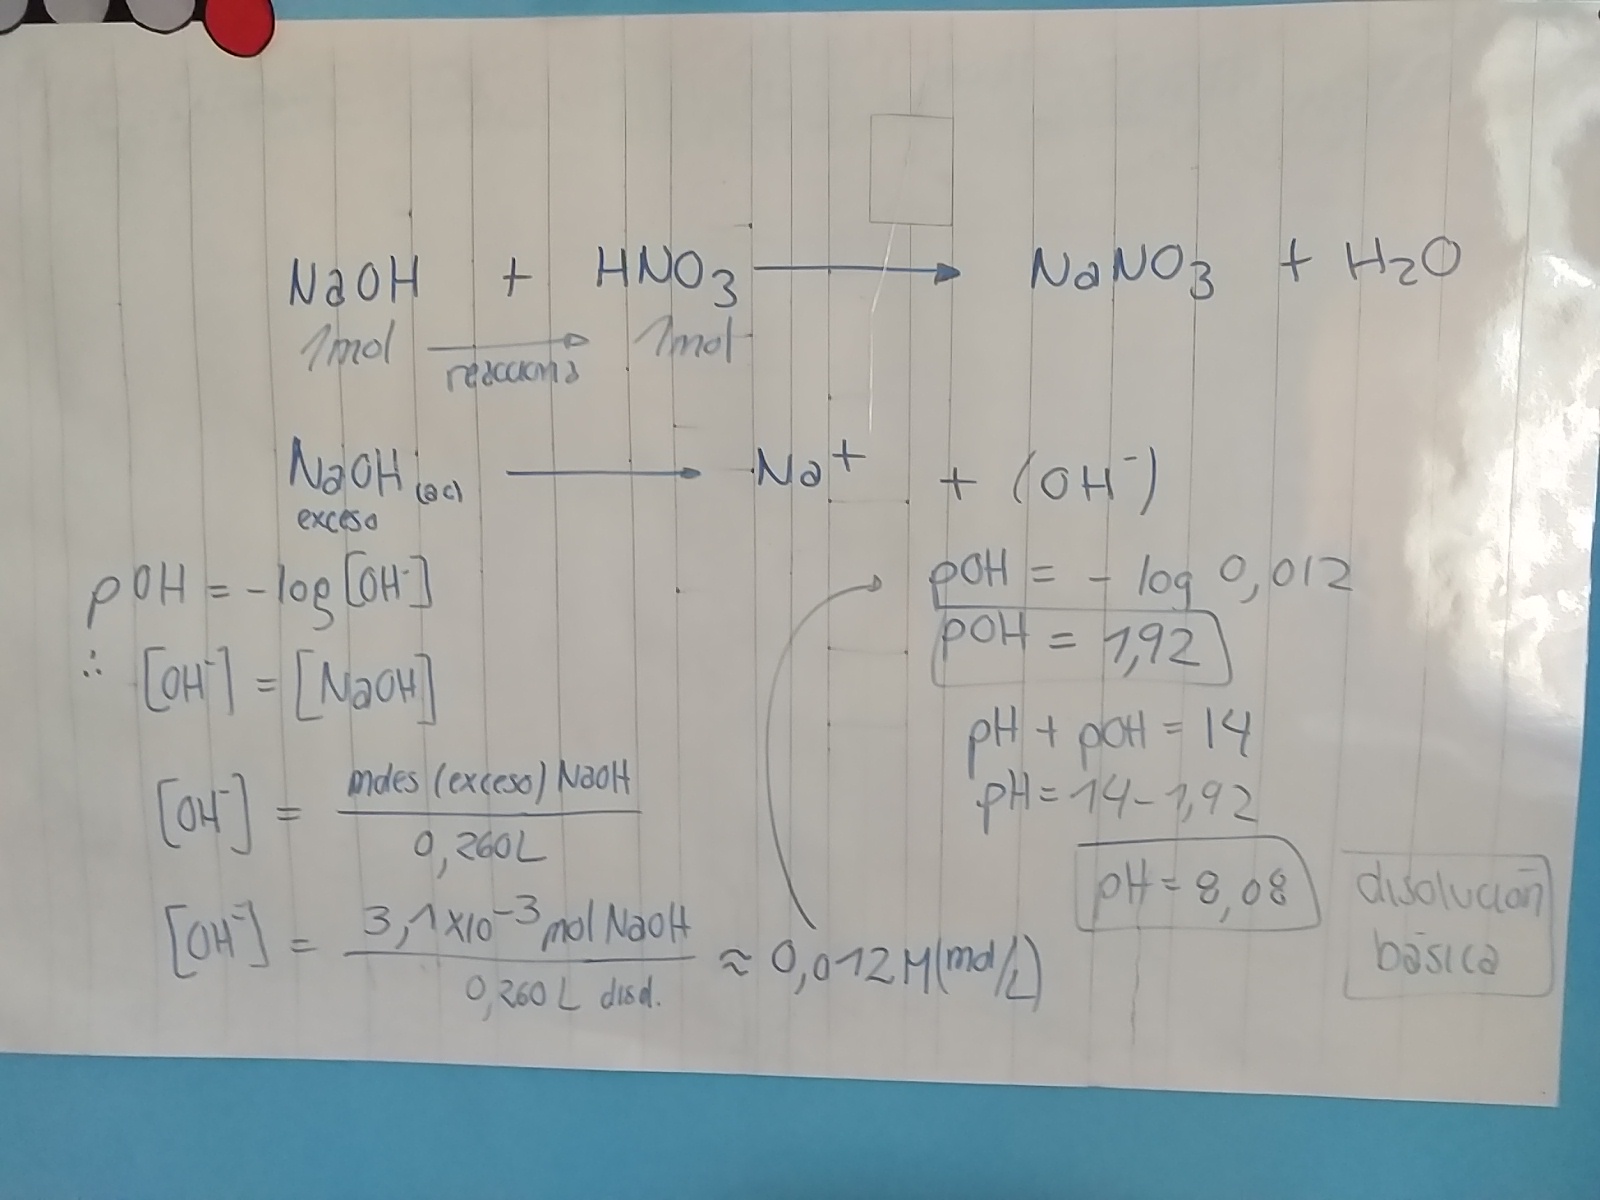 NaOH + HNO3 → NaNO3 + H2O
1mol → 1mol
reacciona
NaOH(ac) → Na+ + (OH-)
exceso
pOH = -log [OH-]
∴ [OH-] = [NaOH]
[OH-] = moles (exceso) NaOH
0,260L
[OH-] = 3,1x10-3 mol NaOH
0,260L disol.
≈ 0,012 M (mol/L)
pOH = - log 0,012
pOH = 1,92
pH + pOH = 14
pH = 14-1,92
pH = 8,08
disolución
básica